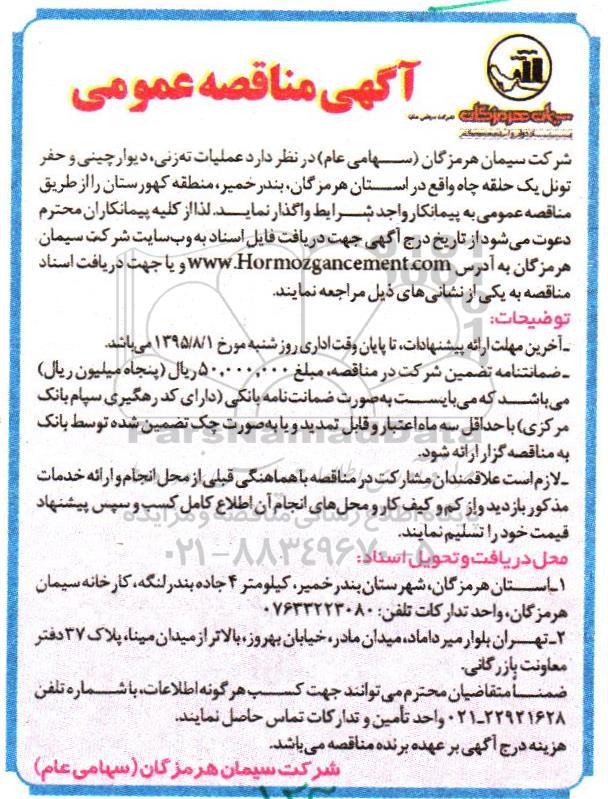 آگهی مناقصه عمومی
سیمان هرمزگان
شرکت سیمان هرمزگان (سهامی عام) در نظر دارد عملیات ته‌زنی، دیوارچینی و حفر
تونل یک حلقه چاه واقع در استان هرمزگان، بندر خمیر، منطقه کهورستان را از طریق
مناقصه عمومی به پیمانکار واجد شرایط واگذار نماید. لذا از کلیه پیمانکاران محترم
دعوت می‌شود از تاریخ درج آگهی جهت دریافت فایل اسناد به وب‌سایت شرکت سیمان
هرمزگان به آدرس www.Hormozgancement.com و یا جهت دریافت اسناد
مناقصه به یکی از نشانی‌های ذیل مراجعه نمایند.
توضیحات:
ـ آخرین مهلت ارائه پیشنهادات، تا پایان وقت اداری روز شنبه مورخ ۱۳۹۵/۸/۱ می‌باشد.
ـ ضمانتنامه تضمین شرکت در مناقصه، مبلغ ۵۰,۰۰۰,۰۰۰ ریال (پنجاه میلیون ریال)
می‌باشد که می‌بایست به‌صورت ضمانت‌نامه بانکی (دارای کد رهگیری سپام بانک
مرکزی) با حداقل سه ماه اعتبار و قابل تمدید و یا به‌صورت چک تضمین شده توسط بانک
به مناقصه گزار ارائه شود.
ـ لازم است علاقمندان مشارکت در مناقصه با هماهنگی قبلی از محل انجام و ارائه خدمات
مذکور بازدید و از کم و کیف کار و محل‌های انجام آن اطلاع کامل کسب و سپس پیشنهاد
قیمت خود را تسلیم نمایند.
ParsNamadData
پایگاه اطلاع رسانی مناقصه و مزایده
۰۲۱-۸۸۳۴۹۶۷۰-۵
محل دریافت و تحویل اسناد:
۱ـ استان هرمزگان، شهرستان بندر خمیر، کیلومتر ۴ جاده بندر لنگه، کارخانه سیمان
هرمزگان، واحد تدارکات تلفن: ۰۷۶۳۳۲۲۳۰۸۰
۲ـ تهران بلوار میرداماد، میدان مادر، خیابان بهروز، بالاتر از میدان مینا، پلاک ۳۷ دفتر
معاونت بازرگانی.
ضمناً متقاضیان محترم می‌توانند جهت کسب هرگونه اطلاعات، با شماره تلفن
۰۲۱-۲۲۹۲۱۶۲۸ واحد تأمین و تدارکات تماس حاصل نمایند.
هزینه درج آگهی بر عهده برنده مناقصه می‌باشد.
شرکت سیمان هرمزگان (سهامی عام)